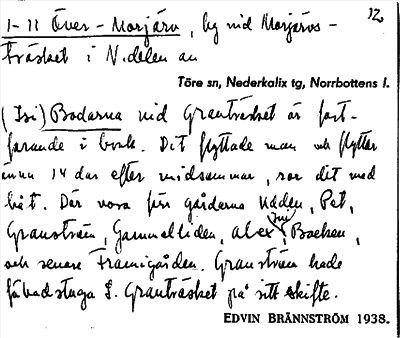 12.
1-11 Över-Morjärv, by vid Morjärvs-
träsket i N. delen av
Töre sn, Nederkalix tg, Norrbottens l.
(Isi) Bodarna vid Granträsket är fort-
farande i bruk. Dit flyttade man och flytter
ännu 14 dar efter midsommar, ror dit med
båt. Där voro förr gårdarna Naden, Pet,
Granström, Gammelliden, Alex, Backen,
och senare Framigården. Granström hade
fäbodstuga S. Granträsket på sitt skifte.
EDVIN BRÄNNSTRÖM 1938.